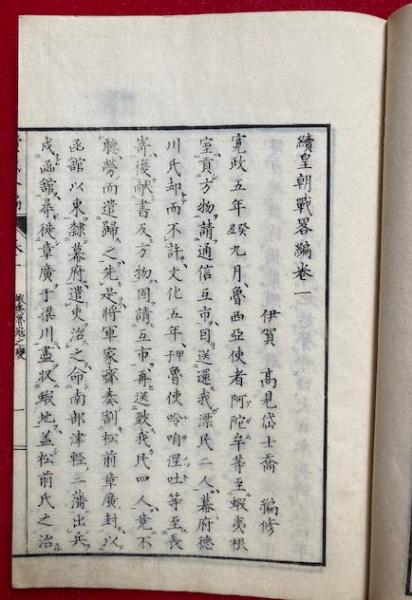 續皇朝戰畧編卷一
伊賀 高見岱士喬 編修
寛政五年癸丑九月魯西亞使者阿陀牟等至蝦夷根
室貢方物請通信互市因送還我漂民二人幕府德
川氏却而不許文化五年甲子魯使吟咱涅吐等至長
嵜復献書及方物固請互市再送致我民四人竟不
聽勞而遣歸之先是將軍家齊奏割松前章廣封以
函舘以東隸幕府遣吏治之命南部津輕二藩出兵
戍函舘尋徙章廣于梁川盡收蝦地蓋松前氏之治
蝦夷魯寇之變
一